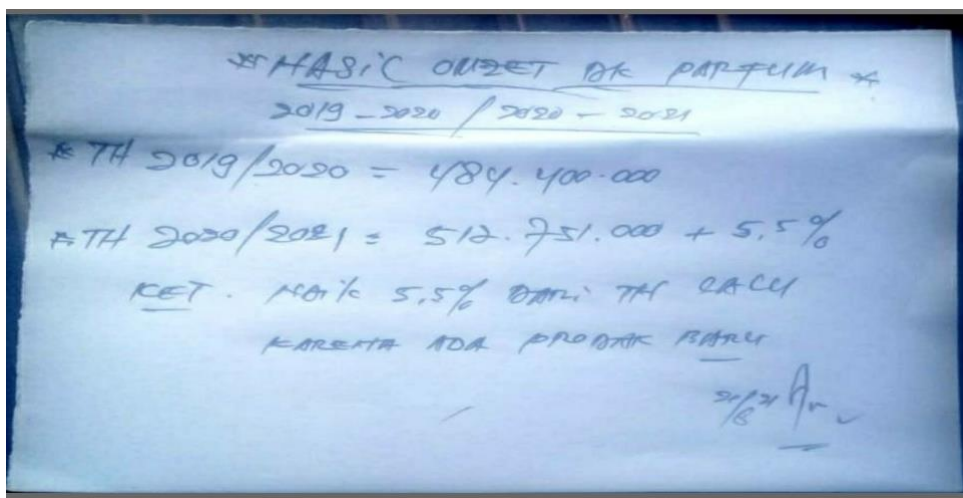 * HASiL OMZET AK PARFUM *
2019 - 2020 / 2020 - 2021
* TH 2019/2020 = 484.400.000
* TH 2020/2021 = 512.751.000 + 5,5%
KET. NAik 5,5% DARi TH LALU
KARENA ADA PRODAK BARU
21/8 21